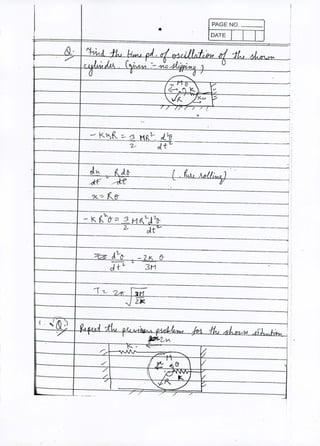 PAGE NO
DATE
Q. Find the time pd. of oscillation of the shown
cylinder. (given :- no slipping)
M θ
K
R Kx
- KxR = 3/2 MR² d²θ/dt²
dx/dt = R dθ/dt (Pure rolling)
x = Rθ
- KR²θ = 3/2 MR² d²θ/dt²
d²θ/dt² = -2K/3M θ
T = 2π √3M/2K
Q. Repeat the previous problem for the shown situation.
2x
K
M
x θ
R K